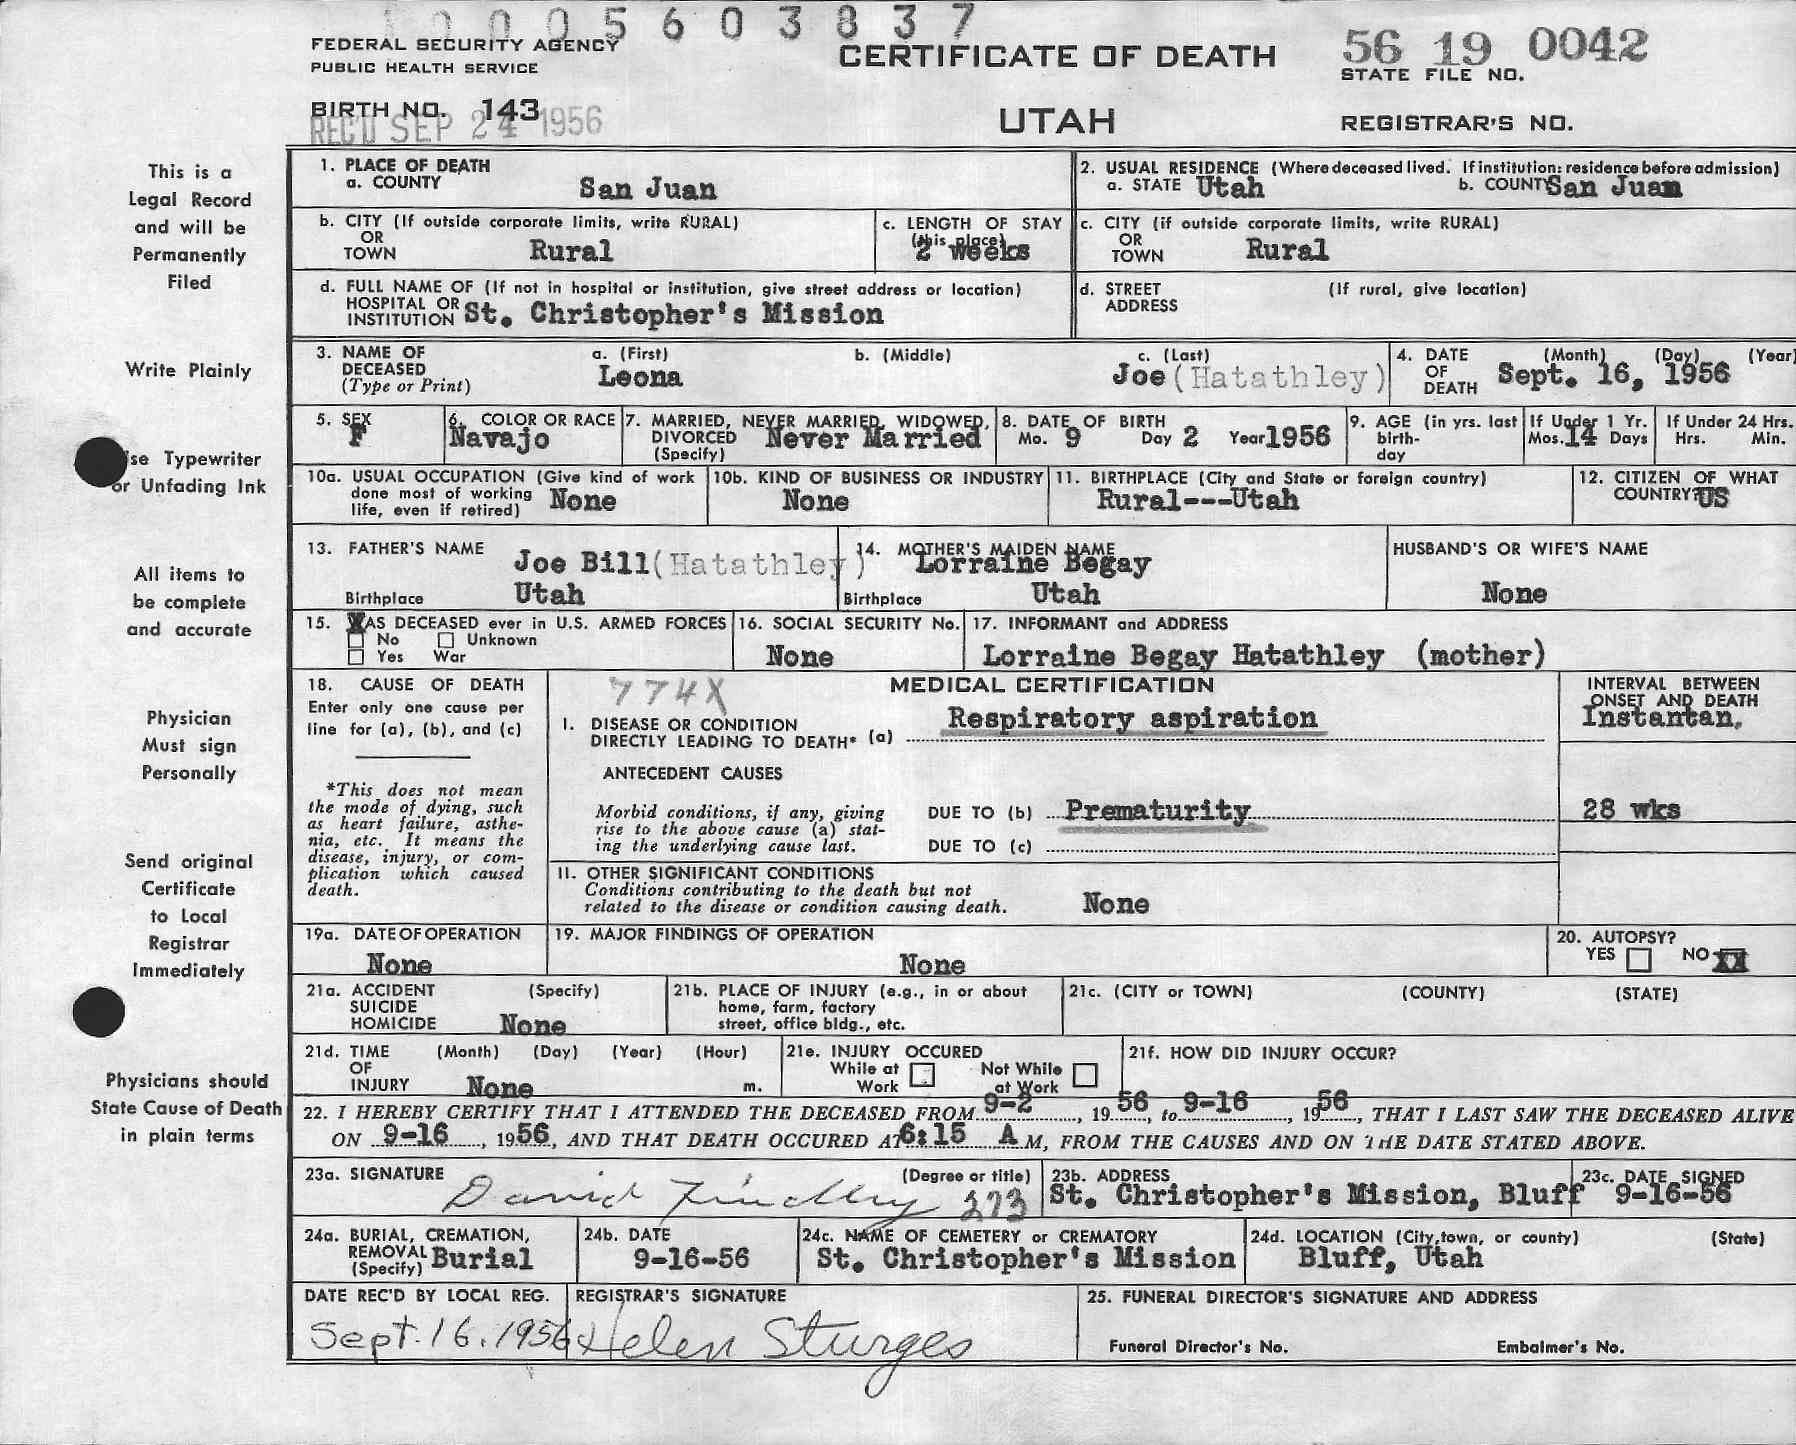 5603837
FEDERAL SECURITY AGENCY
PUBLIC HEALTH SERVICE
CERTIFICATE OF DEATH
56 19 0042
STATE FILE NO.
BIRTH NO. 143
REC'D SEP 24 1956
UTAH
REGISTRAR'S NO.
This is a
Legal Record
and will be
Permanently
Filed
Write Plainly
se Typewriter
or Unfading Ink
All items to
be complete
and accurate
Physician
Must sign
Personally
Send original
Certificate
to Local
Registrar
Immediately
Physicians should
State Cause of Death
in plain terms
1. PLACE OF DEATH
a. COUNTY San Juan
2. USUAL RESIDENCE (Where deceased lived. If institution: residence before admission)
a. STATE Utah b. COUNTY San Juan
b. CITY (If outside corporate limits, write RURAL)
OR
TOWN Rural
c. LENGTH OF STAY
(this place)
2 weeks
c. CITY (if outside corporate limits, write RURAL)
OR
TOWN Rural
d. FULL NAME OF (If not in hospital or institution, give street address or location)
HOSPITAL OR
INSTITUTION St. Christopher's Mission
d. STREET (If rural, give location)
ADDRESS
3. NAME OF
DECEASED
(Type or Print)
a. (First) b. (Middle) c. (Last)
Leona Joe (Hatathley)
4. DATE (Month) (Day) (Year)
OF
DEATH Sept. 16, 1956
5. SEX
F
6. COLOR OR RACE
Navajo
7. MARRIED, NEVER MARRIED, WIDOWED,
DIVORCED Never Married
(Specify)
8. DATE OF BIRTH
Mo. 9 Day 2 Year 1956
9. AGE (in yrs. last
birth-
day
If Under 1 Yr.
Mos. 14 Days
If Under 24 Hrs.
Hrs. Min.
10a. USUAL OCCUPATION (Give kind of work
done most of working
life, even if retired) None
10b. KIND OF BUSINESS OR INDUSTRY
None
11. BIRTHPLACE (City and State or foreign country)
Rural---Utah
12. CITIZEN OF WHAT
COUNTRY? US
13. FATHER'S NAME
Joe Bill (Hatathley)
Birthplace Utah
14. MOTHER'S MAIDEN NAME
Lorraine Begay
Birthplace Utah
HUSBAND'S OR WIFE'S NAME
None
15. WAS DECEASED ever in U.S. ARMED FORCES
No Unknown
Yes War
16. SOCIAL SECURITY No.
None
17. INFORMANT and ADDRESS
Lorraine Begay Hatathley (mother)
18. CAUSE OF DEATH
Enter only one cause per
line for (a), (b), and (c)
*This does not mean
the mode of dying, such
as heart failure, asthe-
nia, etc. It means the
disease, injury, or com-
plication which caused
death.
774X
MEDICAL CERTIFICATION
I. DISEASE OR CONDITION
DIRECTLY LEADING TO DEATH* (a) Respiratory aspiration
ANTECEDENT CAUSES
Morbid conditions, if any, giving
rise to the above cause (a) stat-
ing the underlying cause last.
DUE TO (b) Prematurity
DUE TO (c)
INTERVAL BETWEEN
ONSET AND DEATH
Instantan.
28 wks
II. OTHER SIGNIFICANT CONDITIONS
Conditions contributing to the death but not
related to the disease or condition causing death.
None
19a. DATE OF OPERATION
None
19. MAJOR FINDINGS OF OPERATION
None
20. AUTOPSY?
YES NO XX
21a. ACCIDENT (Specify)
SUICIDE
HOMICIDE None
21b. PLACE OF INJURY (e.g., in or about
home, farm, factory
street, office bldg., etc.
21c. (CITY or TOWN) (COUNTY) (STATE)
21d. TIME (Month) (Day) (Year) (Hour)
OF
INJURY None m.
21e. INJURY OCCURED
While at Work
Not While at Work
21f. HOW DID INJURY OCCUR?
22. I HEREBY CERTIFY THAT I ATTENDED THE DECEASED FROM 9-2, 1956, to 9-16, 1956, THAT I LAST SAW THE DECEASED ALIVE
ON 9-16, 1956, AND THAT DEATH OCCURED AT 6:15 A M, FROM THE CAUSES AND ON THE DATE STATED ABOVE.
23a. SIGNATURE (Degree or title)
David 273
23b. ADDRESS
St. Christopher's Mission, Bluff
23c. DATE SIGNED
9-16-56
24a. BURIAL, CREMATION,
REMOVAL
(Specify) Burial
24b. DATE
9-16-56
24c. NAME OF CEMETERY or CREMATORY
St. Christopher's Mission
24d. LOCATION (City, town, or county) (State)
Bluff, Utah
DATE REC'D BY LOCAL REG.
Sept. 16, 1956
REGISTRAR'S SIGNATURE
Helen Sturges
25. FUNERAL DIRECTOR'S SIGNATURE AND ADDRESS
Funeral Director's No. Embalmer's No.